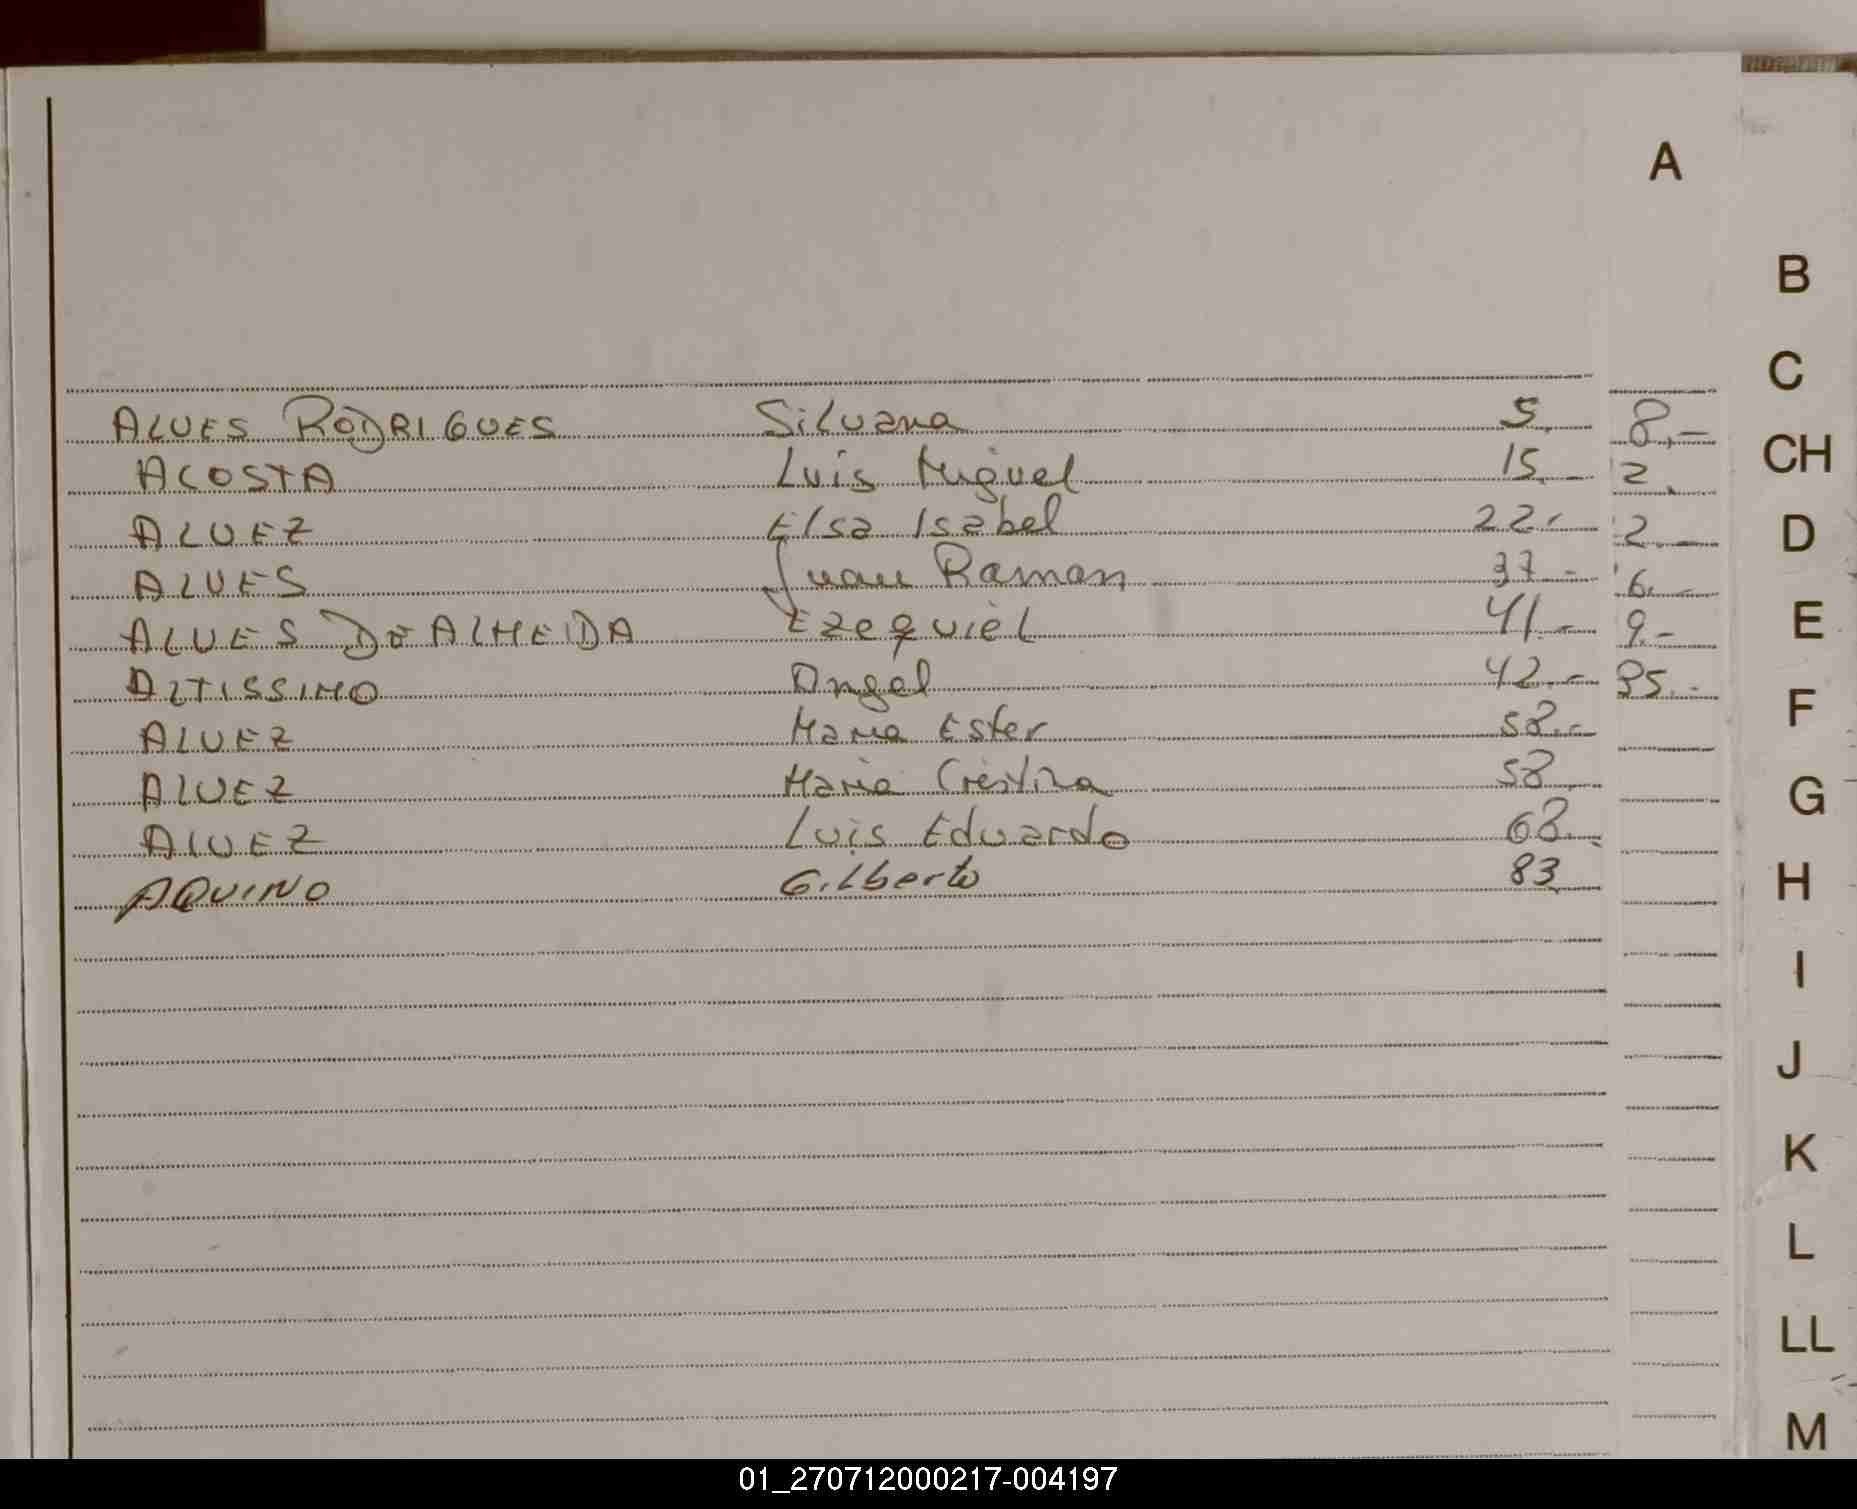 A
ALVES RODRIGUES Silvana 5. 8.-
ACOSTA Luis Miguel 15.- 2.
ALVEZ Elsa Isabel 22.- 2.-
ALVES Juan Ramon 37.- 6.-
ALVES DE ALMEIDA Ezequiel 41.- 9.-
ALTISSIMO Angel 42.- 35.-
ALVEZ Maria Ester 58.-
ALVEZ Maria Cristina 58
ALVEZ Luis Eduardo 68.-
AQUINO Gilberto 83
B
C
CH
D
E
F
G
H
I
J
K
L
LL
M
01_270712000217-004197